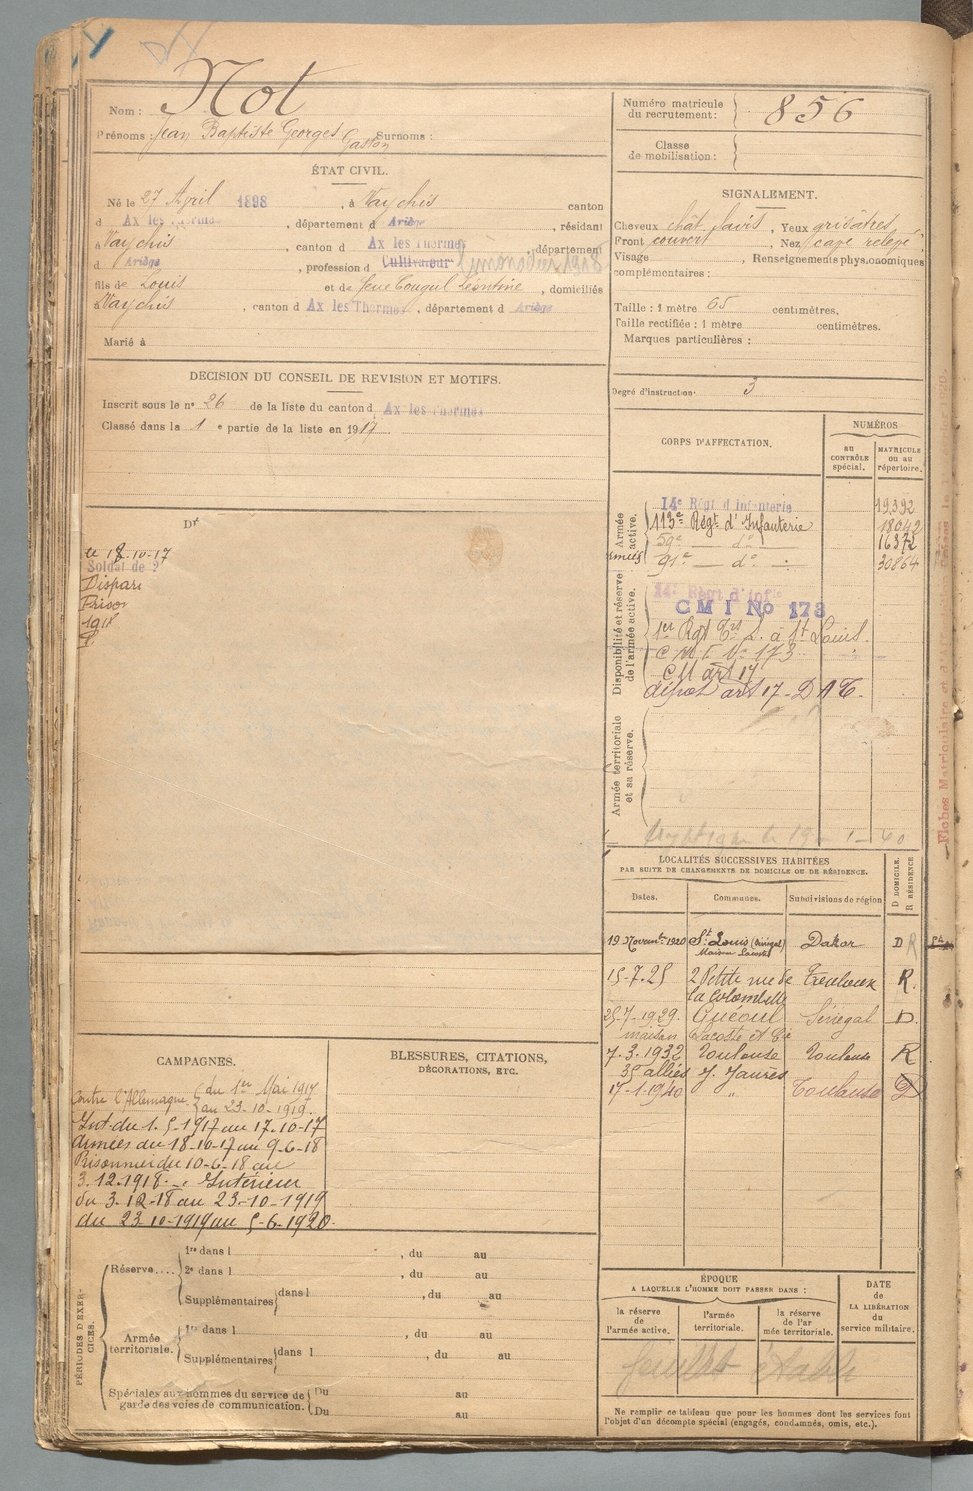 Not
Nom :
Prénoms : Jean Baptiste Georges Gaston Surnoms :
ÉTAT CIVIL.
Né le 27 April 1898, à Vaychis canton
d Ax les Thermes, département d Ariège, résidant
à Vaychis canton d Ax les Thermes, département
d Ariège, profession d Cultivateur
fils de Louis et de Léontine, domiciliés
à Vaychis, canton d Ax les Thermes, département d Ariège
Marié à
DECISION DU CONSEIL DE REVISION ET MOTIFS.
Inscrit sous le n° 26 de la liste du canton d Ax les Thermes
Classé dans la 1 e partie de la liste en 1917
Dt
le 18-10-17
Soldat de 2
Dispari
Prison
1918
CAMPAGNES.
Contre l'Allemagne { du 1er Mai 1917
au 23-10-1919.
Int. du 1.5-1917 au 17.10-17
Armées du 18-10-17 au 9-6-18
Prisonnier du 10-6-18 au
3.12.1918 Intérieur
du 3-12-18 au 23-10-1919
du 23-10-1919 au 5-6-1920.
BLESSURES, CITATIONS,
DÉCORATIONS, ETC.
PÉRIODES D'EXERCICES.
Réserve....
1re dans l , du au
2e dans l , du au
Supplémentaires dans l , du au
Armée territoriale.
1re dans l , du au
Supplémentaires dans l , du au
Spéciales aux hommes du service de garde des voies de communication.
Du au
Du au
Numéro matricule du recrutement : 856
Classe de mobilisation :
SIGNALEMENT.
Cheveux chât, Yeux grisâtres
Front couvert, Nez cave relevé
Visage , Renseignements physionomiques
complémentaires :
Taille : 1 mètre 65 centimètres.
Taille rectifiée : 1 mètre centimètres.
Marques particulières :
Degré d'instruction. 3
CORPS D'AFFECTATION.
NUMÉROS
au CONTRÔLE spécial.
MATRICULE ou au répertoire.
Armée active.
14e Régt d'infanterie 19392
113e Régt d'Infanterie 18042
59e — do — 16372
91e — do — 30864
Disponibilité et réserve de l'armée active.
14e Régt d'Infie
C M I No 173
1er Rgt Trs S. à St Louis.
C M I No 173
CM art 17
dépot art 17 - DAT.
Armée territoriale et sa réserve.
le 19-1-40
LOCALITÉS SUCCESSIVES HABITÉES
PAR SUITE DE CHANGEMENTS DE DOMICILE OU DE RÉSIDENCE.
Dates. Communes. Subdivisions de région D DOMICILE. R RÉSIDENCE
19 Novembre 1920 St Louis (Sénégal) Maison Lacoste Dakar D R
15-7-25 2 Petite rue de la Colombette Toulouse R.
25-7-1929. Guéoul Sénégal D.
maison Lacoste et Cie
7-3-1932 Toulouse Toulouse R
35 allées J. Jaurès
17-1-1940 " Toulouse D
ÉPOQUE
A LAQUELLE L'HOMME DOIT PASSER DANS :
la réserve de l'armée active.
l'armée territoriale.
la réserve de l'armée territoriale.
DATE DE LA LIBÉRATION du service militaire.
feuillet établi
Ne remplir ce tableau que pour les hommes dont les services font
l'objet d'un décompte spécial (engagés, condamnés, omis, etc.).